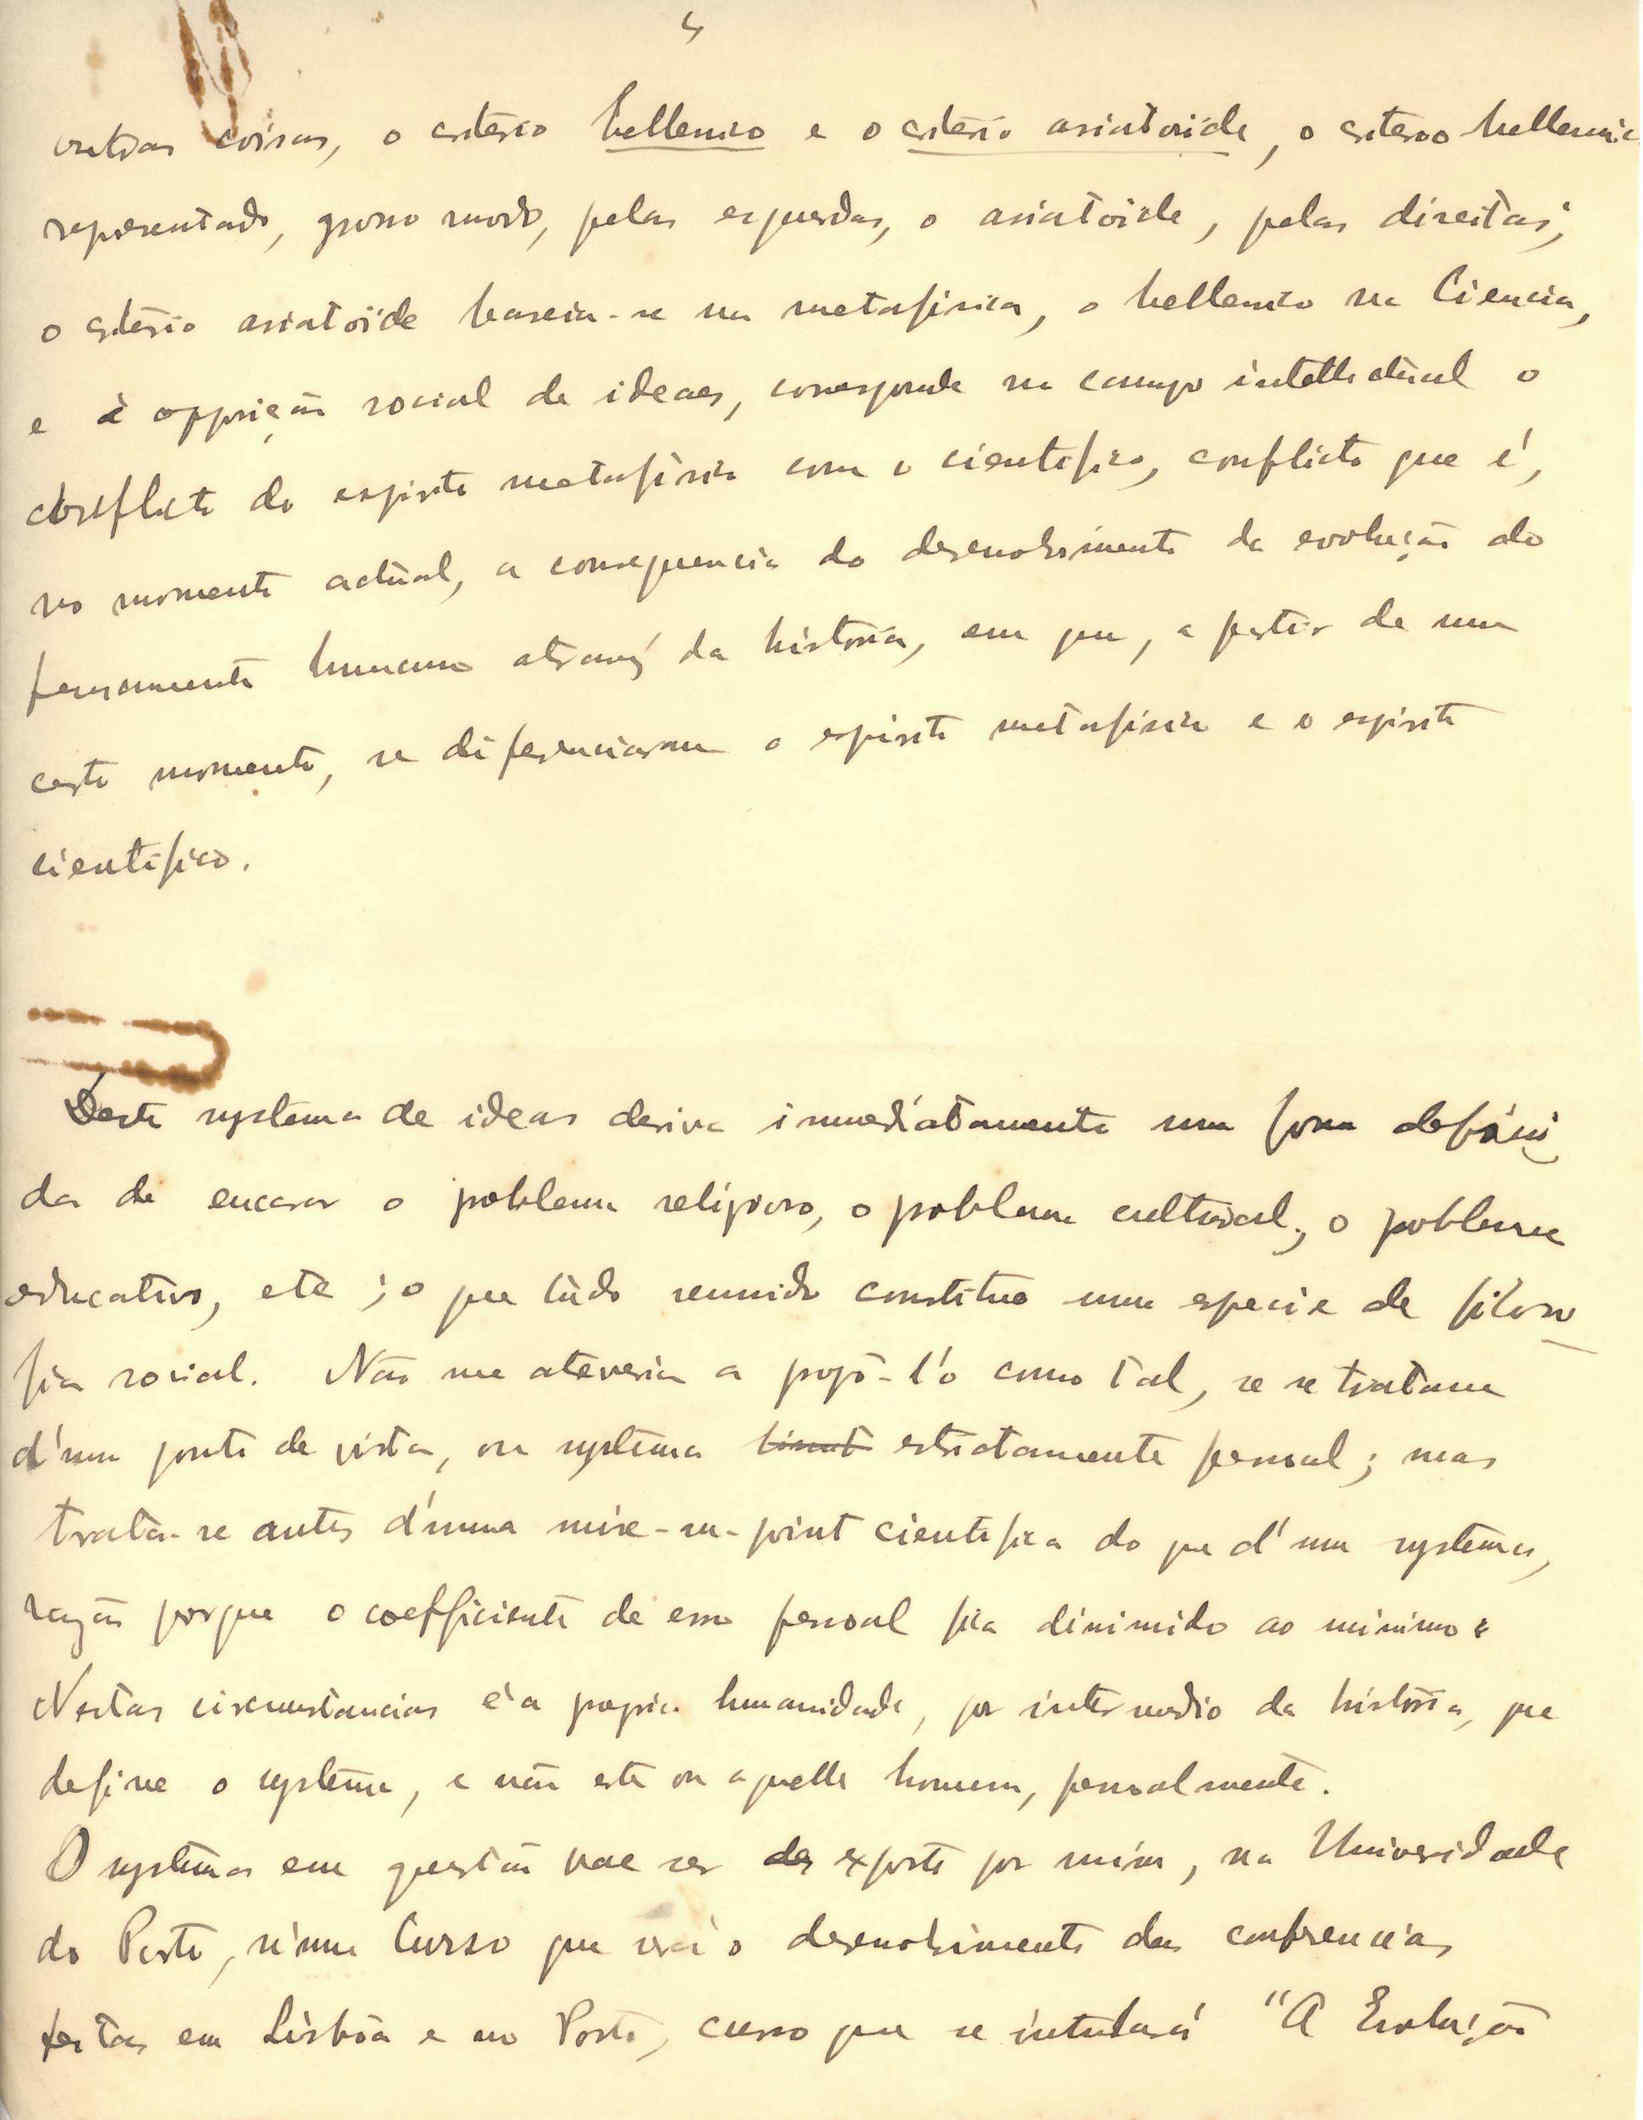 4
outras coisas, o critério hellenico e o critério asiatóide, o critério hellenico
representado, grosso modo, pelas esquerdas, o asiatóide, pelas direitas;
o critério asiatóide baseia-se na metafísica, o hellenico na Ciencia,
e á opposição social de ideaes, corresponde no campo intellectual o
conflicto do espirito metafísico com o cientifico, conflicto que é,
no momento actual, a consequencia do desenvolvimento da evolução do
pensamento humano através da história, em que, a partir de um
certo momento, se diferenciaram o espirito metafísico e o espirito
cientifico.
Deste systema de ideas deriva immediatamente uma forma defini
da de encarar o problema religioso, o problema cultural, o problema
educativo, etc; o que tudo reunido constitue uma especie de filoso
fia social. Não me atreveria a propô-l'o como tal, se se tratasse
d'um ponto de vista, ou systema estrictamente pessoal; mas
trata-se antes d'uma mise-au-point cientifica do que d'um systema,
razão porque o coefficiente de erro pessoal fica diminuido ao minimo.
Nestas circumstancias é a propria humanidade, por intermedio da história, que
define o systema, e não este ou aquelle homem, pessoalmente.
O systema em questão vae ser exposto por mim, na Universidade
do Porto, n'um Curso que será o desenvolvimento das conferencias
feitas em Lisbôa e no Porto, curso que se intitulará "A Evolução